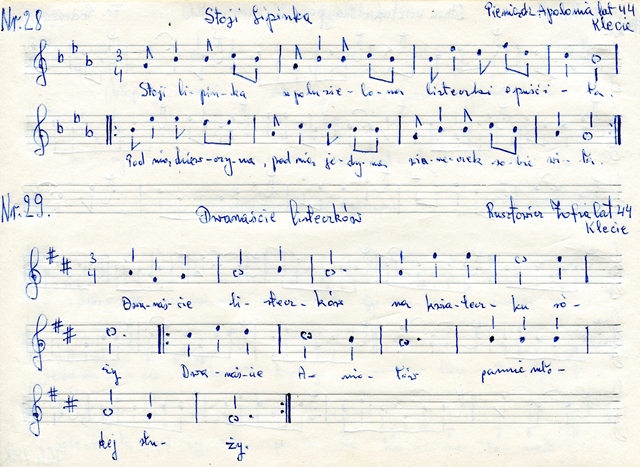 Nr. 28 Stoji lipinka Pieniądz Apolonia lat 44
Klecie
3
4
Stoji li-pin-ka w polu zie-lo-na listeczki opuści-ła.
Pod nią dziew-czy-na, pod nią je-dy-na wia-ne-czek so-bie wi-ła.
Nr. 29. Dwanaście listeczków Rusztowicz Zofia lat 44
Klecie
3
4
Dwa-naś-cie li-stecz-ków na kwia-tecz-ku ró-
ży Dwa-naś-cie A-nio-łów pannie mło-
dej słu-ży.